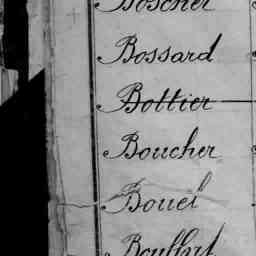 Boscher
Bossard
Bottier
Boucher
Bouel